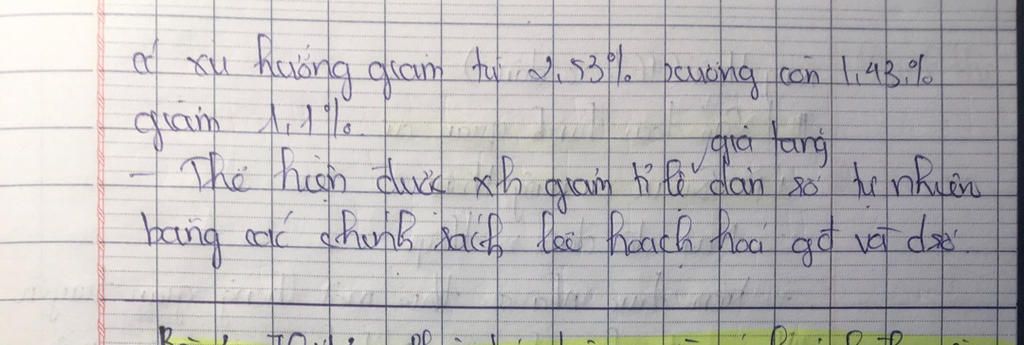 có xu hướng giảm từ 2,53% xuống còn 1,43%
giảm 1,1%.
gia tăng
- Thể hiện được xh giảm tỉ lệ dân số tự nhiên
bằng các chính sách kế hoạch hoá gđ và dsố.